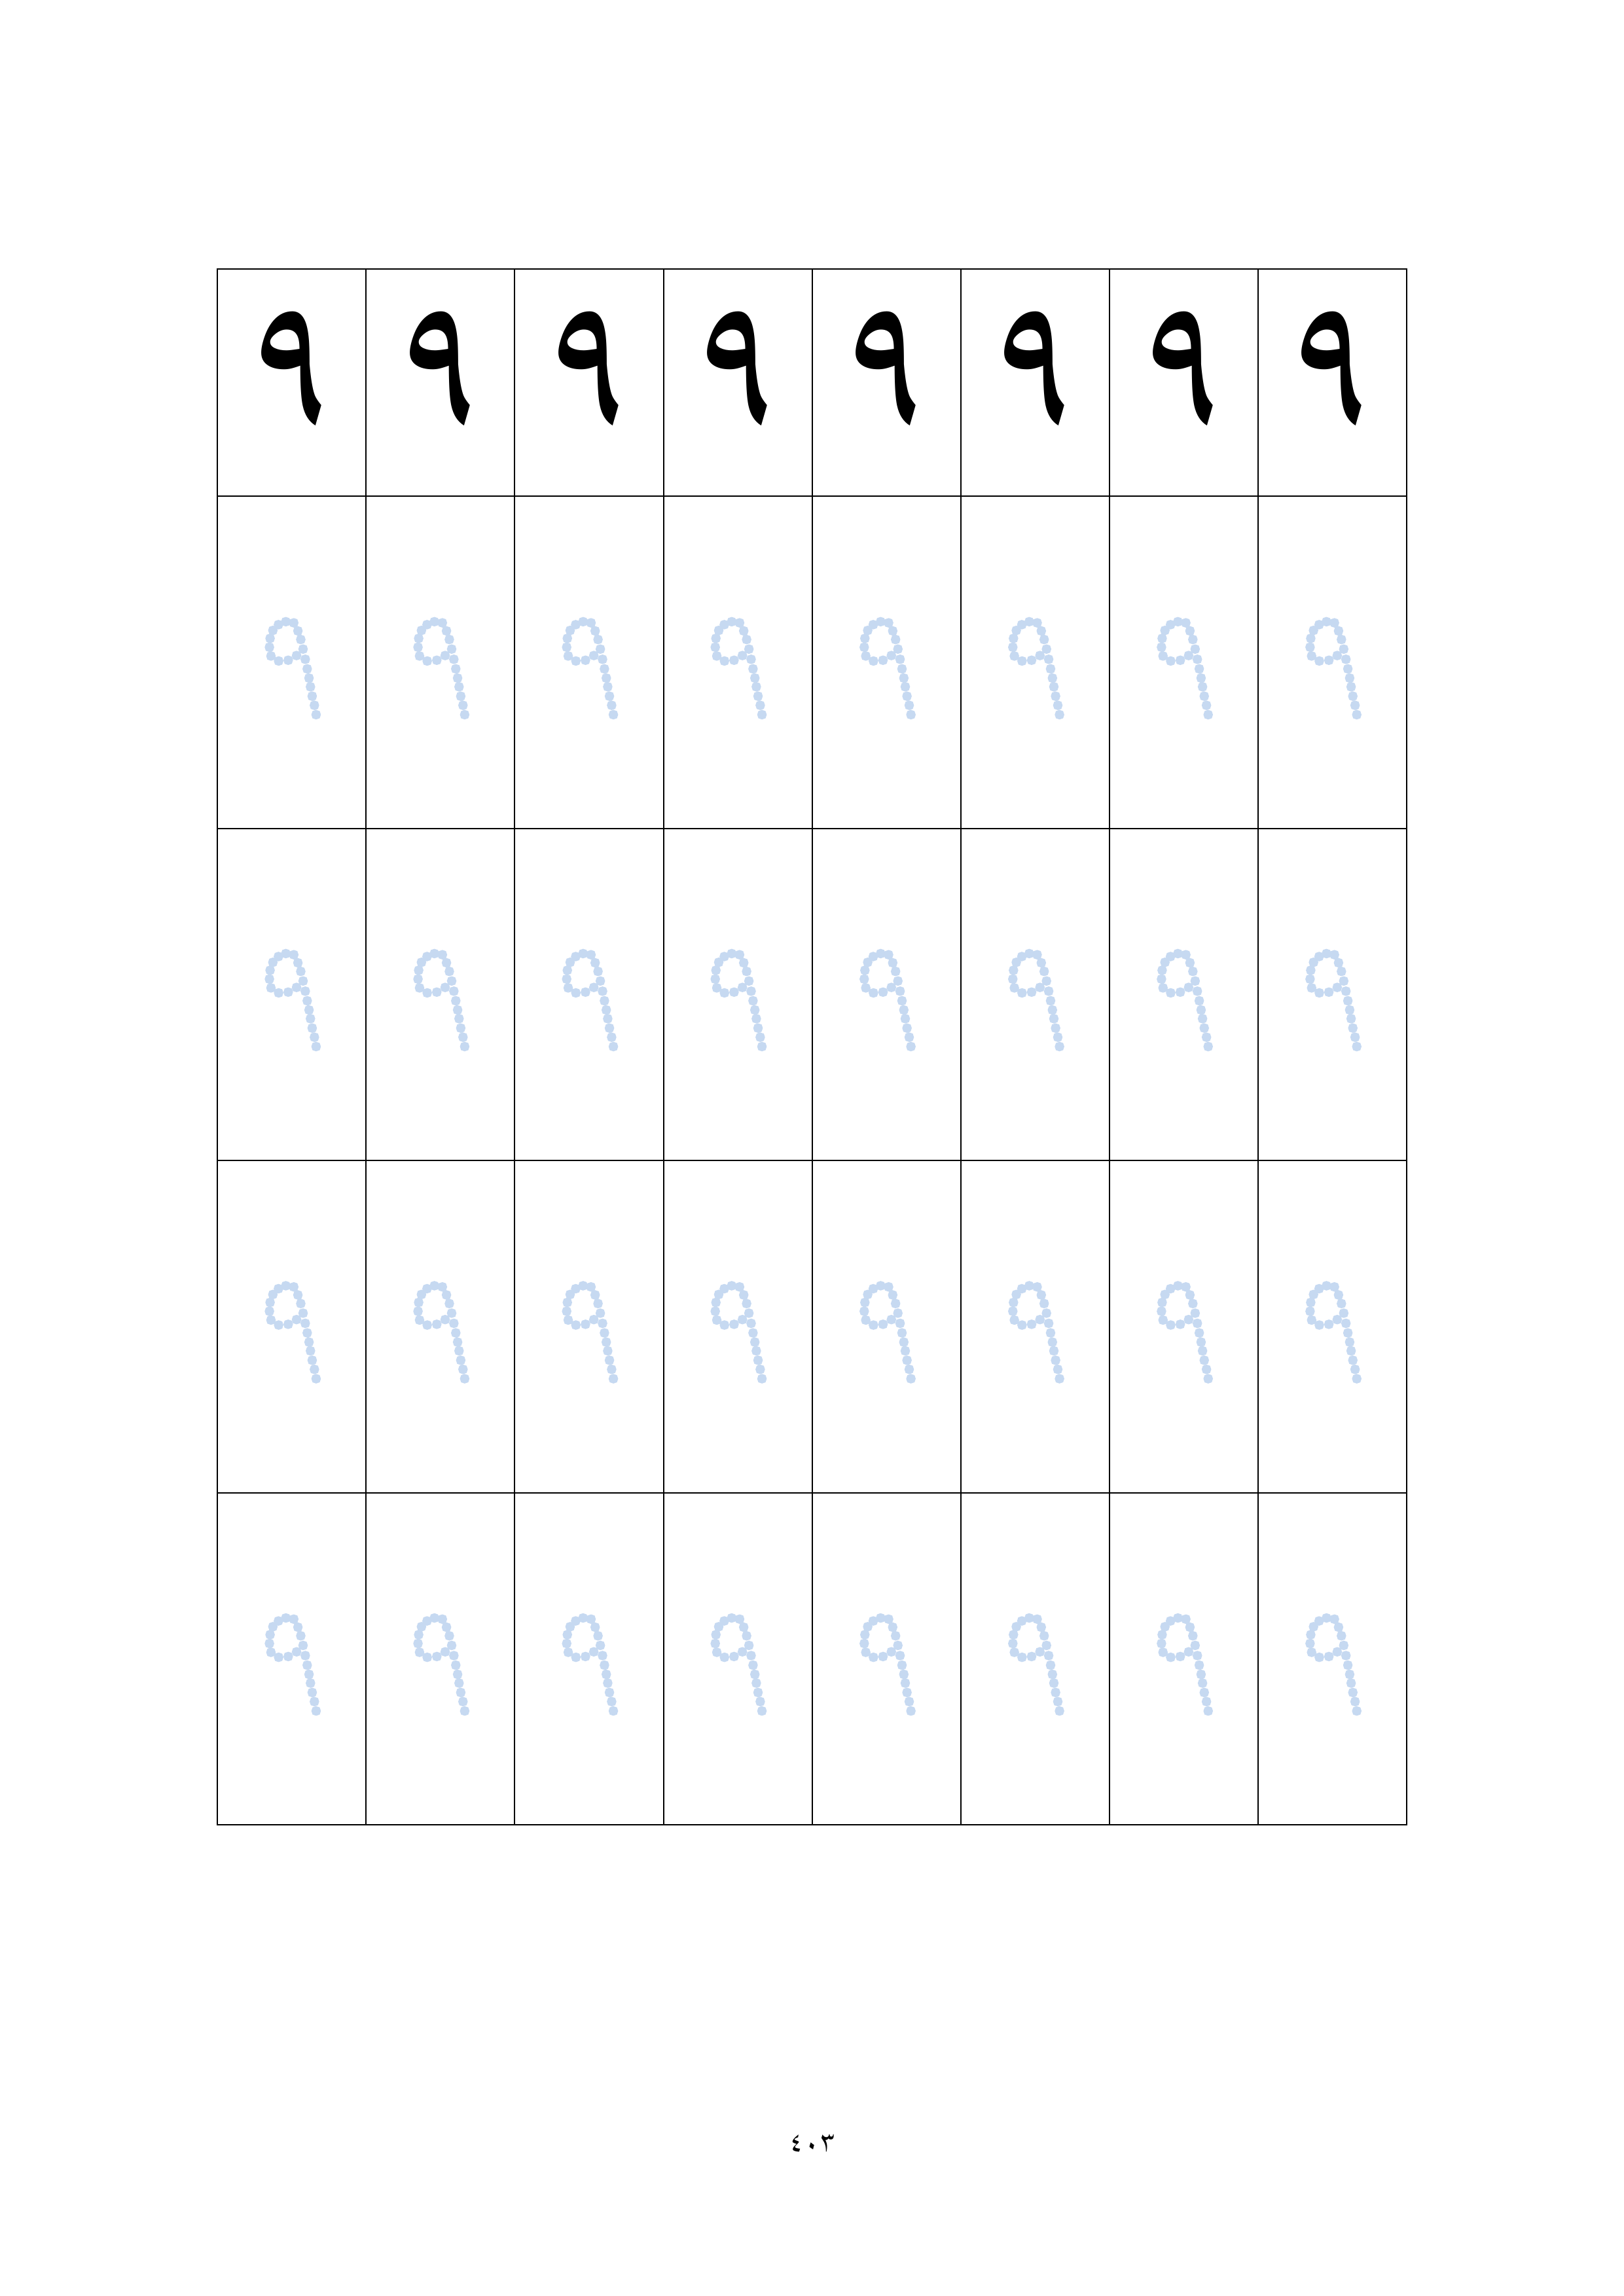 ٩ ٩ ٩ ٩ ٩ ٩ ٩ ٩
٩ ٩ ٩ ٩ ٩ ٩ ٩ ٩
٩ ٩ ٩ ٩ ٩ ٩ ٩ ٩
٩ ٩ ٩ ٩ ٩ ٩ ٩ ٩
٩ ٩ ٩ ٩ ٩ ٩ ٩ ٩
٤٠٣